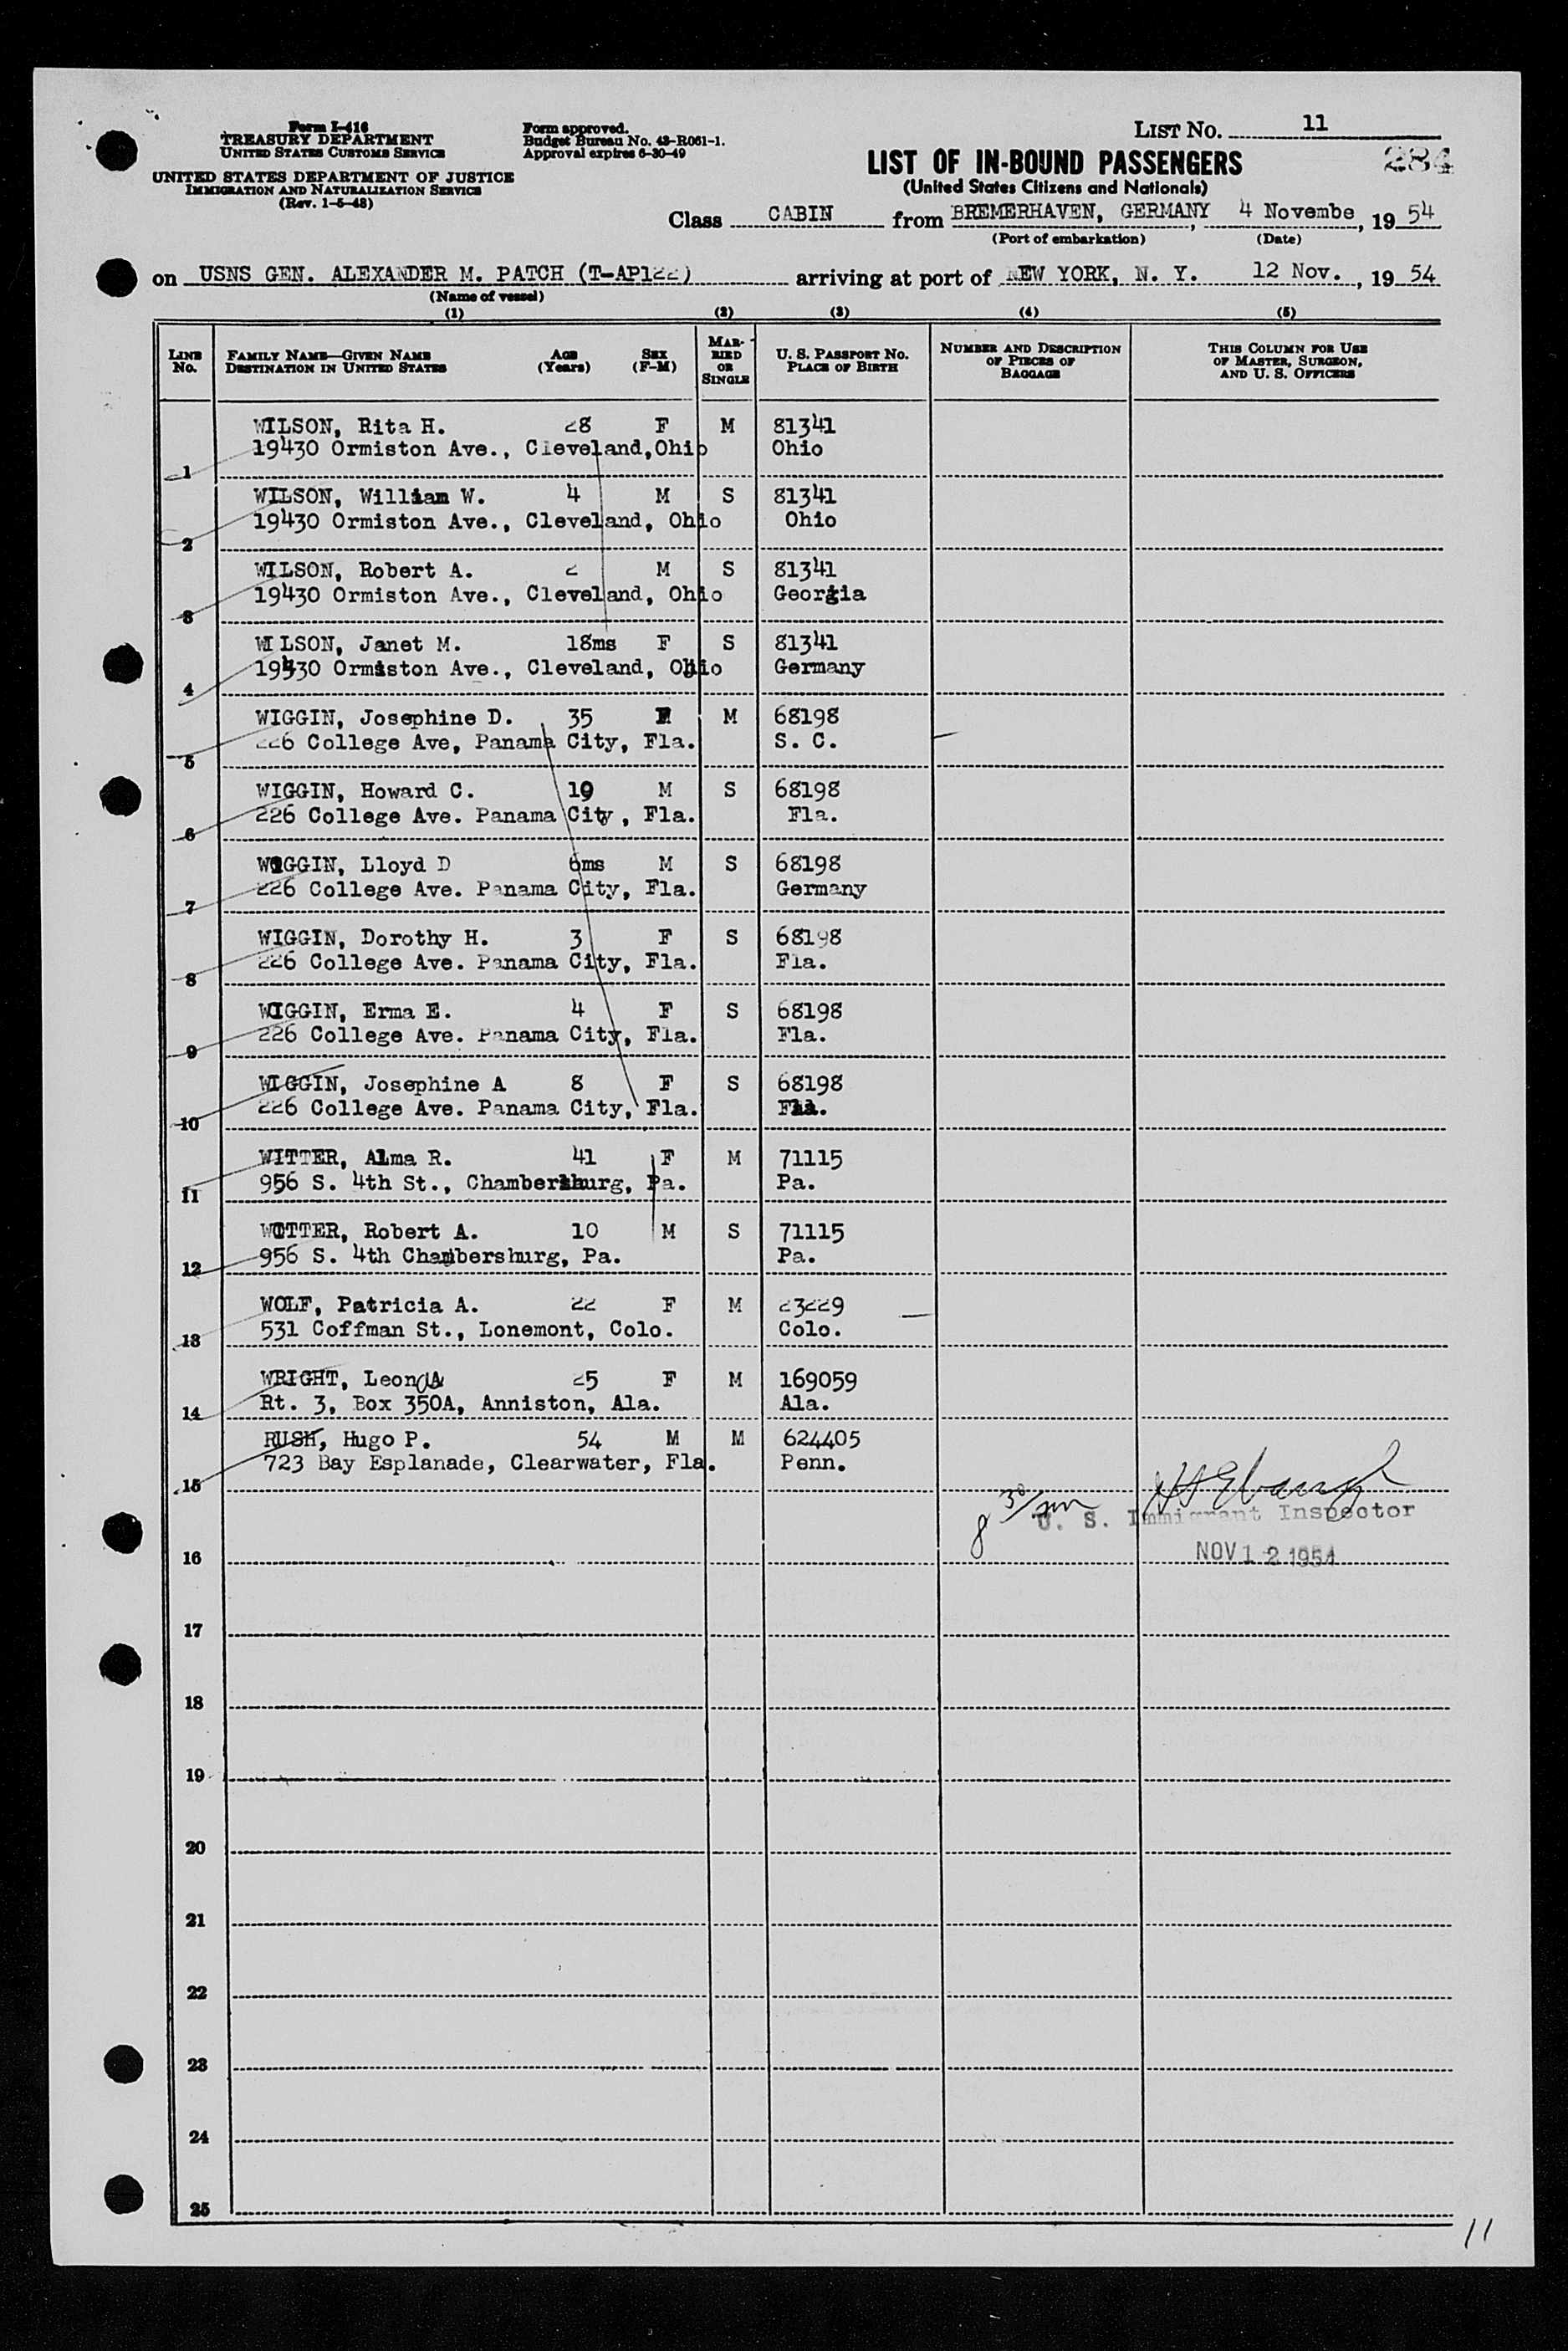 Form I-416
TREASURY DEPARTMENT
UNITED STATES CUSTOMS SERVICE
UNITED STATES DEPARTMENT OF JUSTICE
IMMIGRATION AND NATURALIZATION SERVICE
(Rev. 1-5-48)
Form approved.
Budget Bureau No. 43-R061-1.
Approval expires 6-30-49
LIST No. 11
LIST OF IN-BOUND PASSENGERS
284
(United States Citizens and Nationals)
Class CABIN from BREMERHAVEN, GERMANY, 4 Novembe, 19 54
(Port of embarkation) (Date)
on USNS GEN. ALEXANDER M. PATCH (T-AP122) arriving at port of NEW YORK, N. Y. 12 Nov., 19 54
(Name of vessel)
(1) (2) (3) (4) (5)
LINE No. FAMILY NAME—GIVEN NAME DESTINATION IN UNITED STATES AGE (Years) SEX (F-M) MARRIED OR SINGLE U. S. PASSPORT NO. PLACE OF BIRTH NUMBER AND DESCRIPTION OF PIECES OF BAGGAGE THIS COLUMN FOR USE OF MASTER, SURGEON, AND U. S. OFFICERS
WILSON, Rita H. 28 F M 81341
1 19430 Ormiston Ave., Cleveland, Ohio Ohio
WILSON, William W. 4 M S 81341
2 19430 Ormiston Ave., Cleveland, Ohio Ohio
WILSON, Robert A. 2 M S 81341
3 19430 Ormiston Ave., Cleveland, Ohio Georgia
WILSON, Janet M. 18ms F S 81341
4 19430 Ormiston Ave., Cleveland, Ohio Germany
WIGGIN, Josephine D. 35 F M 68198
5 226 College Ave, Panama City, Fla. S. C.
WIGGIN, Howard C. 19 M S 68198
6 226 College Ave. Panama City, Fla. Fla.
WIGGIN, Lloyd D 6ms M S 68198
7 226 College Ave. Panama City, Fla. Germany
WIGGIN, Dorothy H. 3 F S 68198
8 226 College Ave. Panama City, Fla. Fla.
WIGGIN, Erma E. 4 F S 68198
9 226 College Ave. Panama City, Fla. Fla.
WIGGIN, Josephine A 8 F S 68198
10 226 College Ave. Panama City, Fla. Fla.
WITTER, Alma R. 41 F M 71115
11 956 S. 4th St., Chambersburg, Pa. Pa.
WITTER, Robert A. 10 M S 71115
12 956 S. 4th Chambersburg, Pa. Pa.
WOLF, Patricia A. 22 F M 23229
13 531 Coffman St., Lonemont, Colo. Colo.
WRIGHT, Leona 25 F M 169059
14 Rt. 3, Box 350A, Anniston, Ala. Ala.
RUSH, Hugo P. 54 M M 624405
15 723 Bay Esplanade, Clearwater, Fla. Penn.
U. S. Immigrant Inspector
16 NOV 12 1954
17
18
19
20
21
22
23
24
25
11